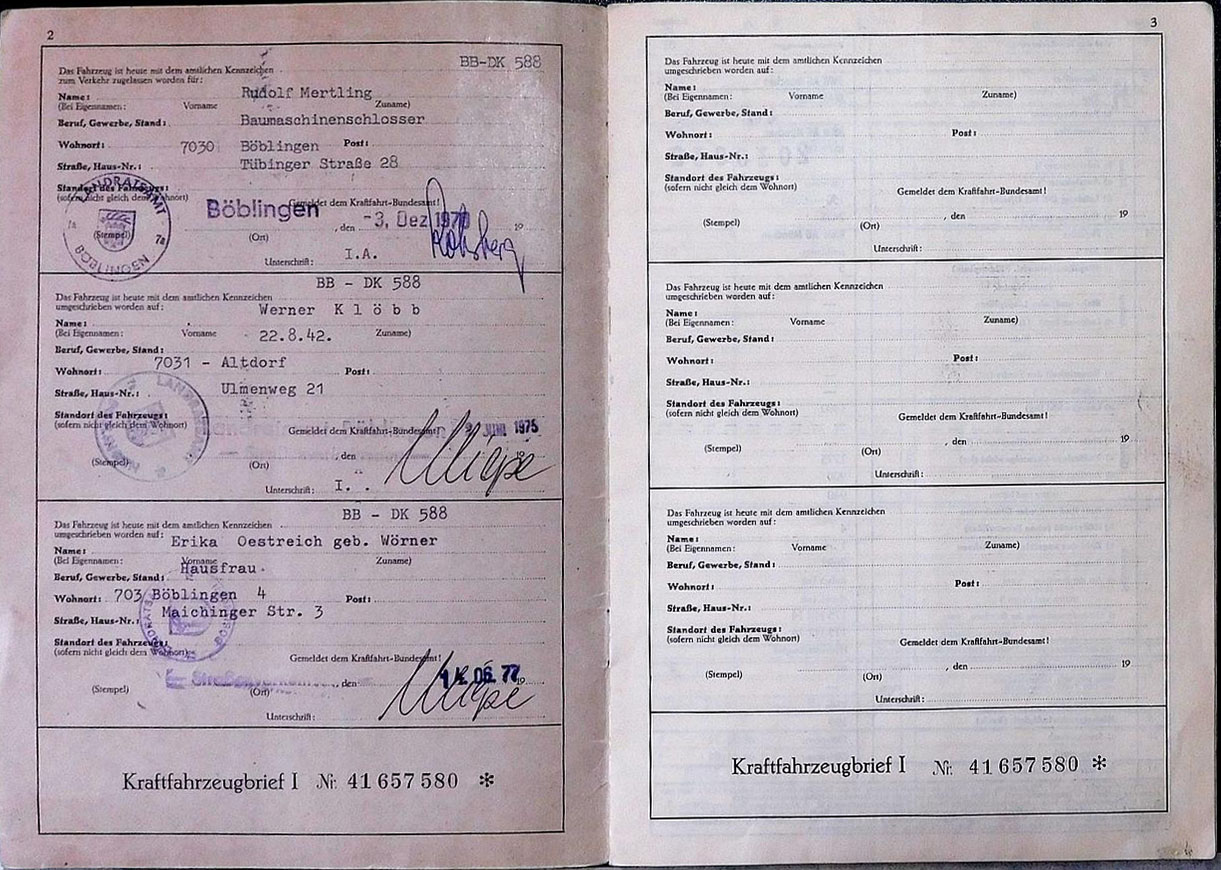 2
BB-DK 588
Das Fahrzeug ist heute mit dem amtlichen Kennzeichen
zum Verkehr zugelassen worden für:
Rudolf Mertling
Name:
(Bei Eigennamen: Vorname Zuname)
Beruf, Gewerbe, Stand: Baumaschinenschlosser
Wohnort: 7030 Böblingen Post:
Straße, Haus-Nr.: Tübinger Straße 28
Standort des Fahrzeugs:
(sofern nicht gleich dem Wohnort)
Gemeldet dem Kraftfahrt-Bundesamt!
LANDRATSAMT
BÖBLINGEN
7a
(Stempel)
Böblingen
(Ort)
, den -3. Dez 1970 19
Unterschrift: I.A.
BB - DK 588
Das Fahrzeug ist heute mit dem amtlichen Kennzeichen
umgeschrieben worden auf:
Werner Klöbb
Name:
(Bei Eigennamen: Vorname Zuname)
22.8.42.
Beruf, Gewerbe, Stand:
Wohnort: 7031 - Altdorf Post:
Straße, Haus-Nr.: Ulmenweg 21
Standort des Fahrzeugs:
(sofern nicht gleich dem Wohnort)
Gemeldet dem Kraftfahrt-Bundesamt!
(Stempel)
(Ort)
, den JUNI 1975 19
Unterschrift: I.
BB - DK 588
Das Fahrzeug ist heute mit dem amtlichen Kennzeichen
umgeschrieben worden auf:
Erika Oestreich geb. Wörner
Name:
(Bei Eigennamen: Vorname Zuname)
Hausfrau
Beruf, Gewerbe, Stand:
Wohnort: 703 Böblingen 4 Post:
Straße, Haus-Nr.: Maichinger Str. 3
Standort des Fahrzeugs:
(sofern nicht gleich dem Wohnort)
Gemeldet dem Kraftfahrt-Bundesamt!
(Stempel)
(Ort)
, den 14. 06. 77 19
Unterschrift:
Kraftfahrzeugbrief I Nr. 41 657 580 *
3
Das Fahrzeug ist heute mit dem amtlichen Kennzeichen
umgeschrieben worden auf:
Name:
(Bei Eigennamen: Vorname Zuname)
Beruf, Gewerbe, Stand:
Wohnort: Post:
Straße, Haus-Nr.:
Standort des Fahrzeugs:
(sofern nicht gleich dem Wohnort)
Gemeldet dem Kraftfahrt-Bundesamt!
, den 19
(Stempel)
(Ort)
Unterschrift:
Das Fahrzeug ist heute mit dem amtlichen Kennzeichen
umgeschrieben worden auf:
Name:
(Bei Eigennamen: Vorname Zuname)
Beruf, Gewerbe, Stand:
Wohnort: Post:
Straße, Haus-Nr.:
Standort des Fahrzeugs:
(sofern nicht gleich dem Wohnort)
Gemeldet dem Kraftfahrt-Bundesamt!
, den 19
(Stempel)
(Ort)
Unterschrift:
Das Fahrzeug ist heute mit dem amtlichen Kennzeichen
umgeschrieben worden auf:
Name:
(Bei Eigennamen: Vorname Zuname)
Beruf, Gewerbe, Stand:
Wohnort: Post:
Straße, Haus-Nr.:
Standort des Fahrzeugs:
(sofern nicht gleich dem Wohnort)
Gemeldet dem Kraftfahrt-Bundesamt!
, den 19
(Stempel)
(Ort)
Unterschrift:
Kraftfahrzeugbrief I Nr. 41 657 580 *